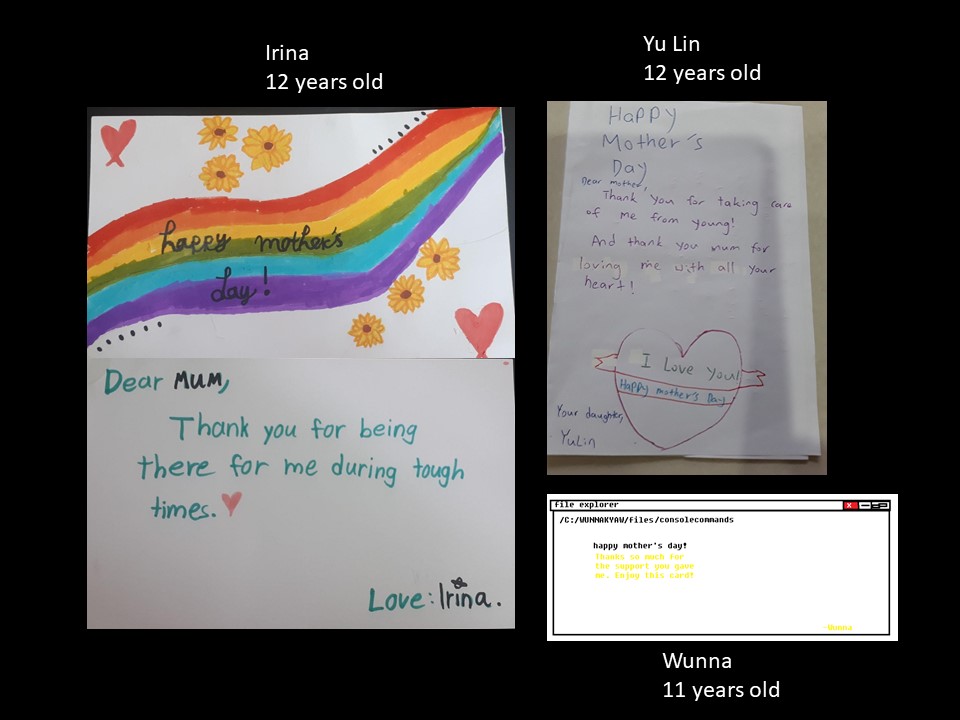 Irina
12 years old
happy mother's
day!
Dear MUM,
Thank you for being
there for me during tough
times.
Love: Irina.
Yu Lin
12 years old
Happy
Mother's
Day
Dear mother,
Thank you for taking care
of me from young!
And thank you mum for
loving me with all your
heart!
I Love you!
Happy mother's Day
Your daughter,
YuLin
file explorer
/C:/WUNNAKYAW/files/consolecommands
happy mother's day!
Thanks so much for
the support you gave
me. Enjoy this card!
-Wunna
Wunna
11 years old